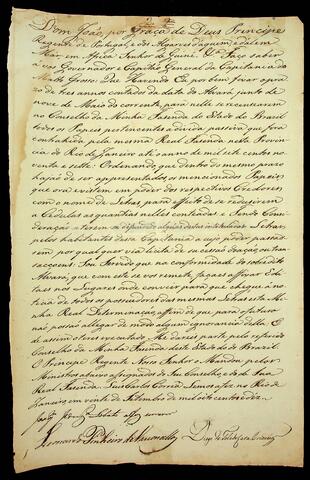 Dom João, por Graça de Deus Principe
Regente de Portugal, e dos Algarves d'aquem, e dalem
Mar em Africa Senhor de Guiné. Faço saber
a vós Governador e Capitão General da Capitania do
Matto Grosso: Que Havendo Eu por bem fixar o pra-
zo de tres annos contados da data do Alvará junto de
nove de Maio do corrente, para nelle se recensearem
no Conselho da Minha Fazenda do Estado do Brazil
todos os Papeis pertencentes á divida passiva que fora
contrahida pela mesma Real Fazenda nesta Provin-
cia do Rio de Janeiro até o anno de mil sete centos no-
venta e sete: Ordenando que dentro do mesmo prazo
hajão de ser appresentados os mencionados Papeis,
que ora existem em poder dos respectivos Credores,
com o nome de Letras para effeito de se reduzirem
a Cedulas as quantias nelles conteudas: E Sendo Consi-
deração a terem algumas destas intituladas Letras,
pelos habitantes dessa Capitania a cujo poder passa-
rem por qualquer via, e titulo de cessão doação ou tran-
sacções: Sou Servido que na conformidade do sobredito
Alvará, que com este se vos remete, façaes affixar Edi-
taes nos Lugares onde convier para que chegue á no-
ticia de todos os possuidores das mesmas Letras esta Mi-
nha Real Determinação, affim de que para o futuro
não possão allegar de modo algum ignorancia della. E
de assim o teres executado Me dareis parte pelo referido
Conselho da Minha Fazenda deste Estado do Brazil.
O Principe Regente Nosso Senhor o Mandou pelos
Ministros abaixo assignados do Seu Conselho, e do de Sua
Real Fazenda. Luis Carlos Correa Lemos a fez no Rio de
Janeiro em vente de Setembro de mil oito centos e dez.
Leonardo Pinheiro de Vasconcellos Diogo de Toledo